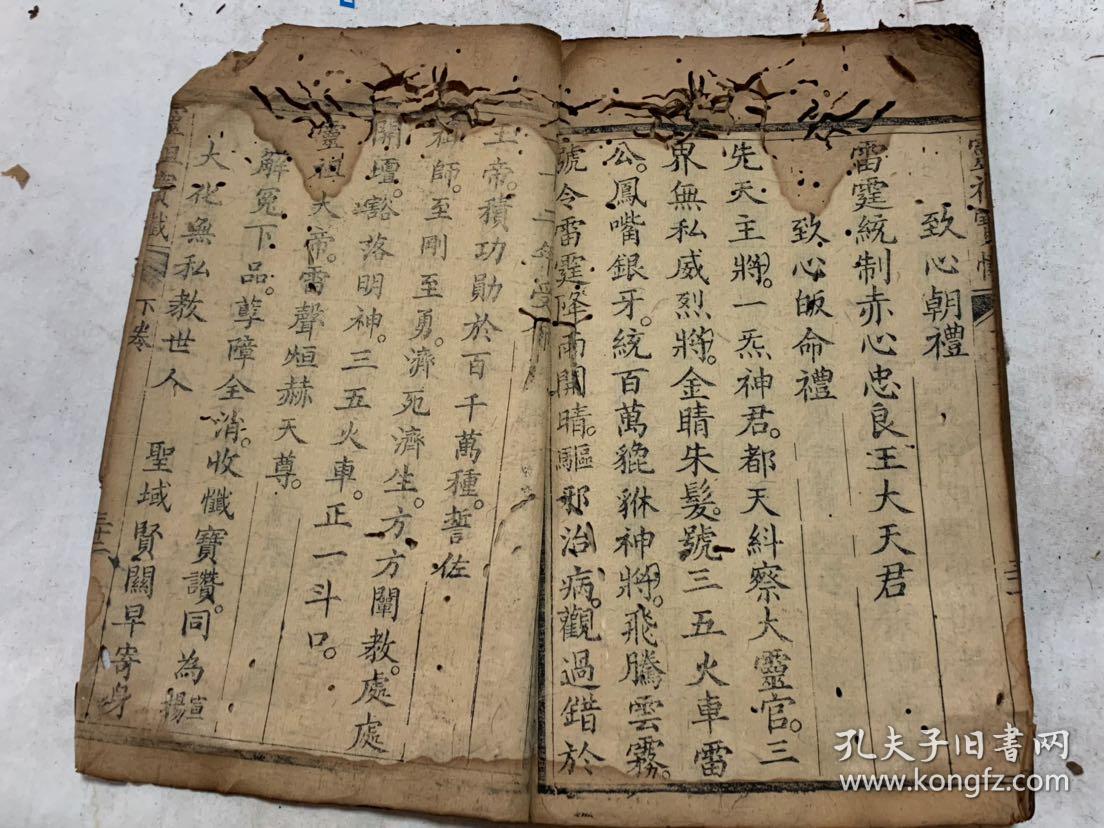 致心朝禮
雷霆統制赤心忠良王大天君
致心皈命禮
先天主將。一炁神君。都天糾察大靈官。三
界無私威烈將。金睛朱髮。號三五火車雷
公。鳳嘴銀牙。統百萬貔貅神將。飛騰雲霧。
號令雷霆。降雨開晴。驅邪治病。觀過錯於
一
玉帝。積功勛於百千萬種。誓佐
祖師。至剛至勇。濟死濟生。方方闡教。處處
開壇。豁落明神。三五火車。正一斗口。
靈祖大帝。雷聲烜赫天尊。
解冤下品。孽障全消。收懺寶讚。同為宣揚
大化無私教世人 聖域賢關早寄身
下卷
孔夫子旧书网
www.kongfz.com